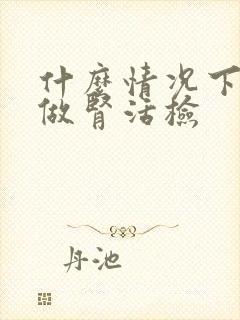 什麼情况下
做腎活檢
丹池